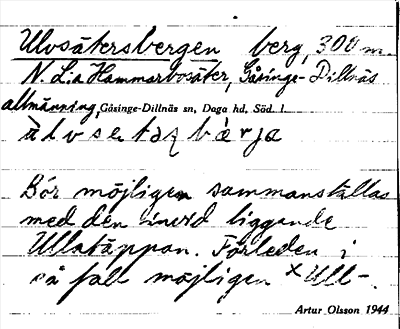 Ulvsätersbergen berg, 300 m
N. Li a Hammarbosäter, Gåsinge-Dillnäs
allmänning, Gåsinge-Dillnäs sn, Daga hd, Söd. l.
Bör möjligen sammanställas
med den invid liggande
Ullatäppan. Förleden i
så fall möjligen × Ull-.
Artur Olsson 1944